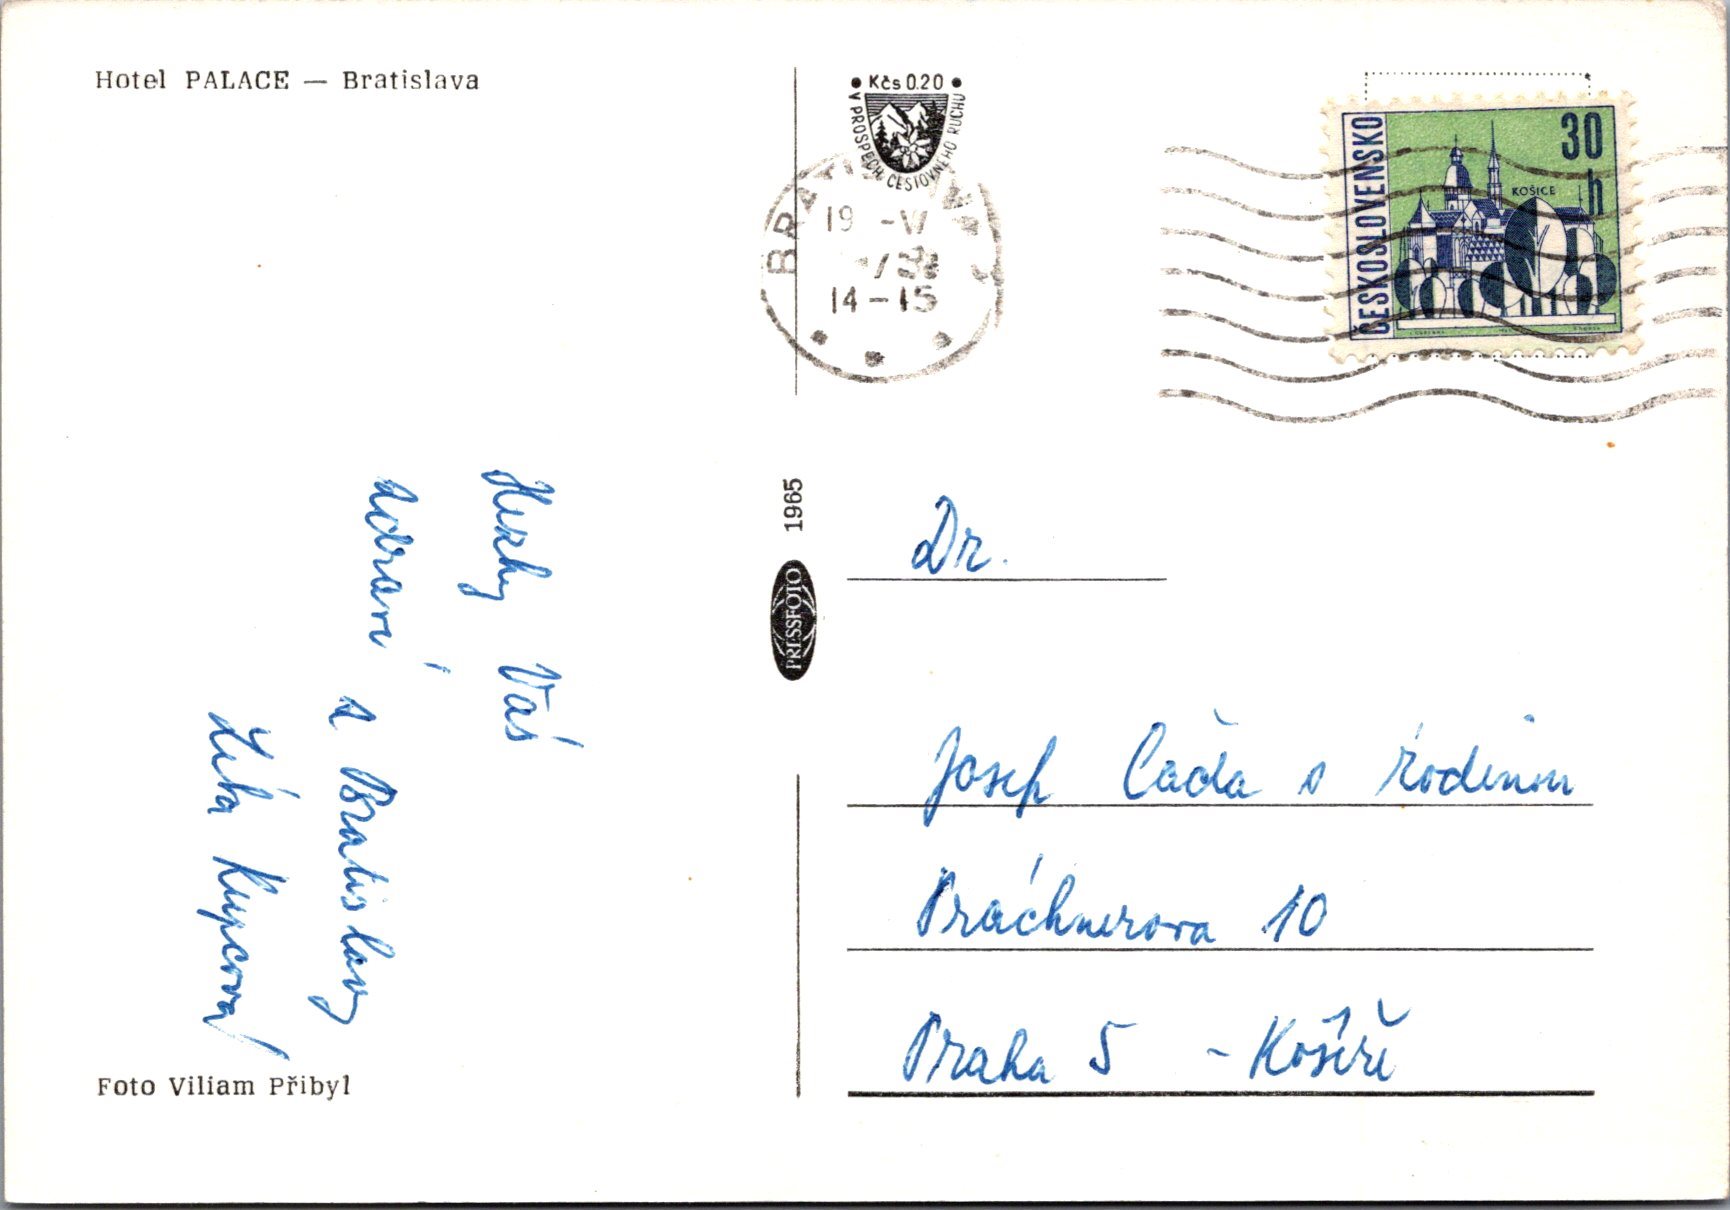 Hotel PALACE — Bratislava
• Kčs 0.20 •
V PROSPĚCH CESTOVNÉHO RUCHU
19 -VI
14-15
ČESKOSLOVENSKO
30
h
KOŠICE
1965
PRESSFOTO
Hezky Vás
zdraví
z Bratislavy
Kupcova
Dr.
Josef Čada s rodinou
Práchnerova 10
Praha 5 - Košíře
Foto Viliam Přibyl